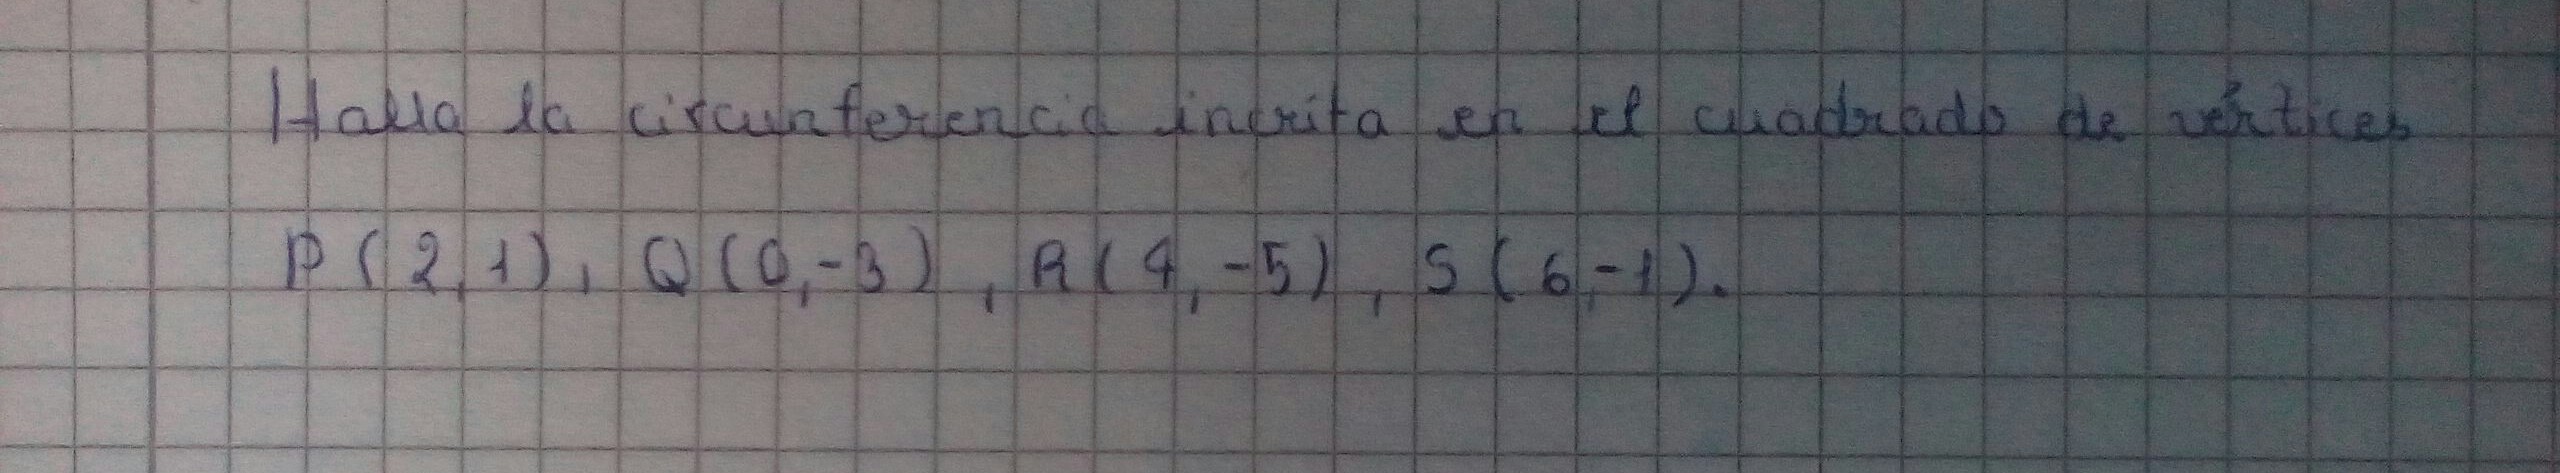 Halla la circunferencia incrita en el cuadrado de vértices
P(2,1), Q(0,-3), R(4,-5), S(6,-1).